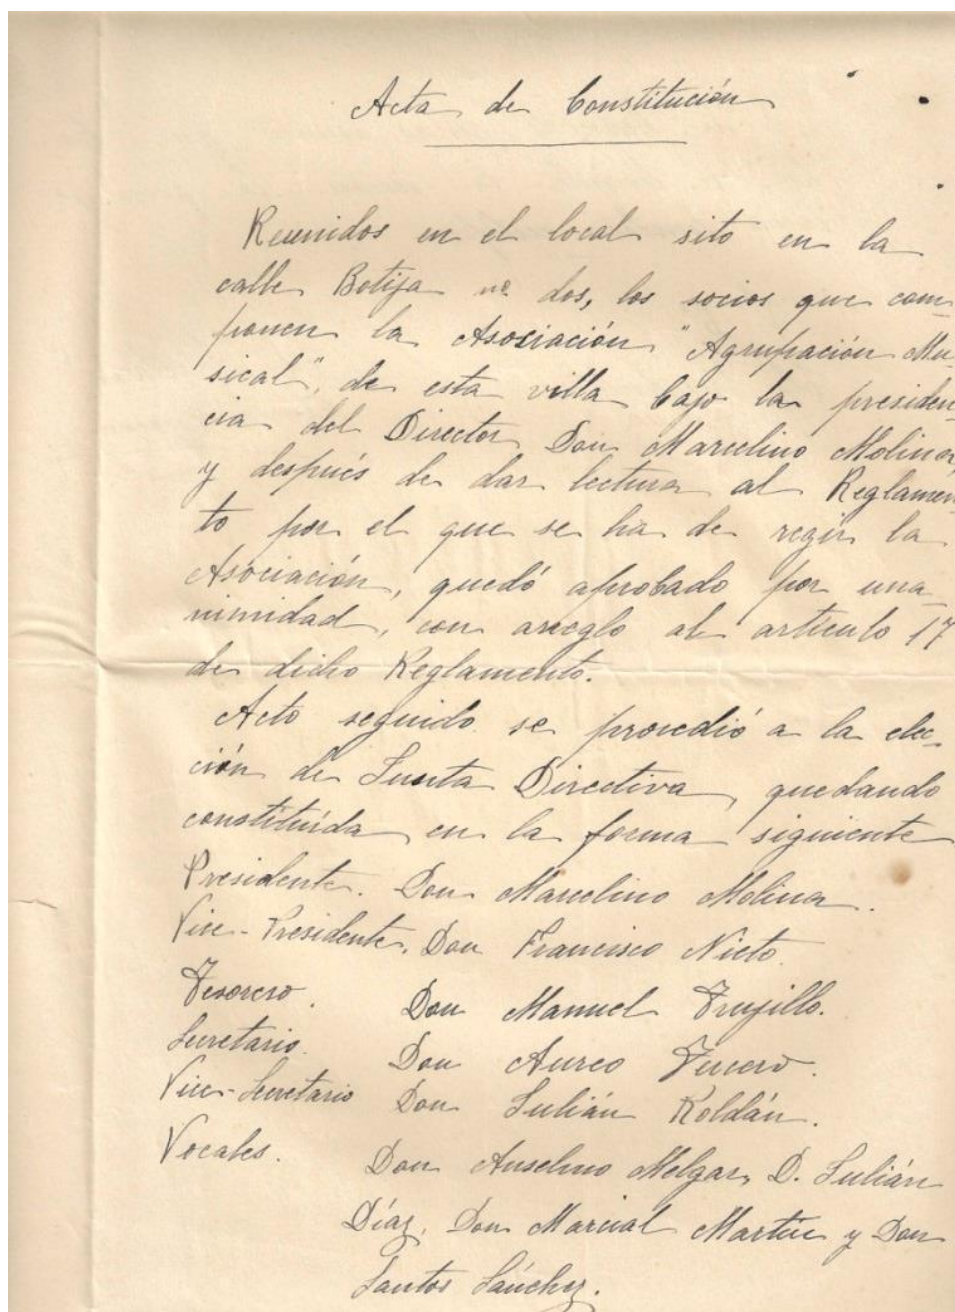 Acta de Constitución
Reunidos en el local sito en la
calle Botija nº dos, los socios que com-
ponen la Asociación "Agrupación Mu-
sical", de esta villa bajo la presiden-
cia del Director Don Marcelino Molina,
y después de dar lectura al Reglamen-
to por el que se ha de regir la
Asociación, quedó aprobado por una-
nimidad, con arreglo al artículo 17
de dicho Reglamento.
Acto seguido se procedió a la elec-
ción de Junta Directiva, quedando
constituída en la forma siguiente
Presidente. Don Marcelino Molina.
Vice-Presidente. Don Francisco Nieto.
Tesorero. Don Manuel Trujillo.
Secretario. Don Aureo
Vice-Secretario Don Julián Roldán.
Vocales. Don Anselmo Melgar, D. Julián
Díaz, Don Marcial Martín y Don
Santos Sánchez.